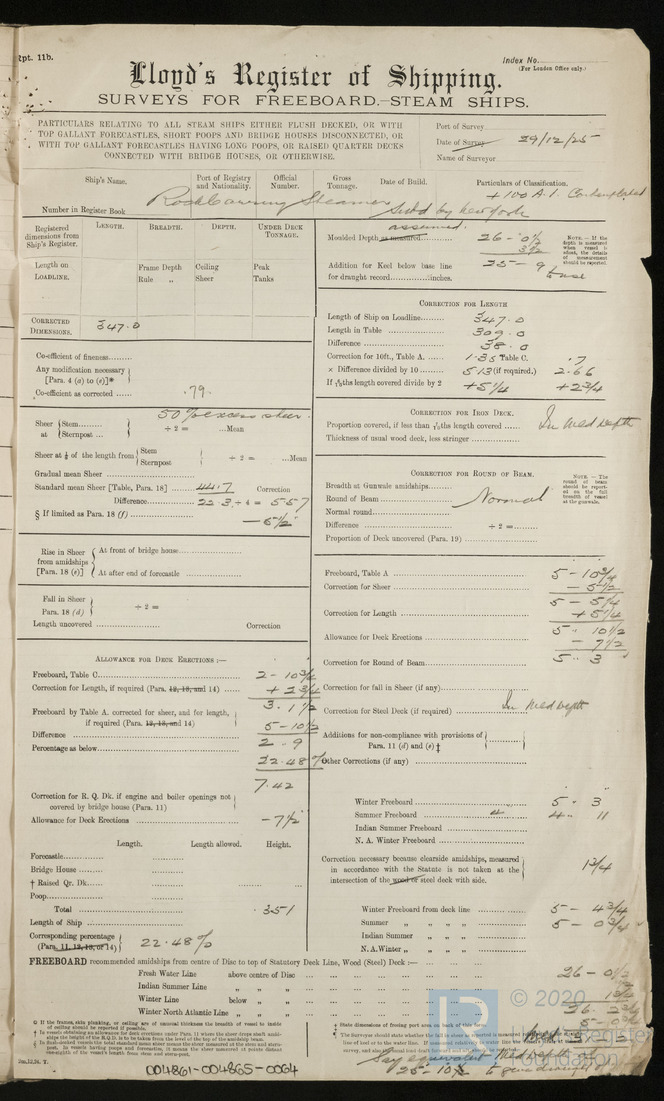 Rpt. 11b.
Index No.
(For London Office only.)
Lloyd's Register of Shipping.
SURVEYS FOR FREEBOARD.—STEAM SHIPS.
PARTICULARS RELATING TO ALL STEAM SHIPS EITHER FLUSH DECKED, OR WITH
TOP GALLANT FORECASTLES, SHORT POOPS AND BRIDGE HOUSES DISCONNECTED, OR
WITH TOP GALLANT FORECASTLES HAVING LONG POOPS, OR RAISED QUARTER DECKS
CONNECTED WITH BRIDGE HOUSES, OR OTHERWISE.
Port of Survey
Date of Survey 29/12/25
Name of Surveyor
Ship's Name.
Port of Registry and Nationality.
Official Number.
Gross Tonnage.
Date of Build.
Particulars of Classification.
+100 A.1. Contemplated
Rock Carrying Steamer
Number in Register Book
Subd by New York
Registered dimensions from Ship's Register.
LENGTH. BREADTH. DEPTH. UNDER DECK TONNAGE.
Length on LOADLINE.
Frame Depth Ceiling Peak
Rule " Sheer Tanks
CORRECTED DIMENSIONS. 347.0
Co-efficient of fineness
Any modification necessary
[Para. 4 (a) to (e)]*
Co-efficient as corrected .79
50% excess sheer
Sheer at Stem Sternpost ÷ 2 = Mean
Sheer at ⅛ of the length from Stem Sternpost ÷ 2 = Mean
Gradual mean Sheer
Standard mean Sheer [Table, Para. 18] 44.7 Correction
Difference 22.3 ÷ 4 = 5.57
§ If limited as Para. 18 (f) —5½
Rise in Sheer from amidships [Para. 18 (e)]
At front of bridge house
At after end of forecastle
Fall in Sheer Para. 18 (d) ÷ 2 =
Length uncovered Correction
ALLOWANCE FOR DECK ERECTIONS :—
Freeboard, Table C 2 - 10¾
Correction for Length, if required (Para. 12, 13, and 14) + 2¾
3. 1½
Freeboard by Table A. corrected for sheer, and for length,
if required (Para. 12, 13, and 14) 5 - 10½
Difference 2 . 9
Percentage as below 22.48%
7.42
Correction for R. Q. Dk. if engine and boiler openings not
covered by bridge house (Para. 11)
Allowance for Deck Erections -7½
Length. Length allowed. Height.
Forecastle
Bridge House
† Raised Qr. Dk.
Poop
Total .351
Length of Ship
Corresponding percentage
(Para. 11, 12, 13, or 14) 22.48%
assumed.
Moulded Depth as measured 26 - 0½
Addition for Keel below base line
for draught record inches.
25 - 9
NOTE.—If the depth is measured when vessel is afloat, the details of measurement should be reported.
CORRECTION FOR LENGTH
Length of Ship on Loadline 347.0
Length in Table 309.0
Difference 38.0
Correction for 10ft., Table A. 1.35 Table C. .7
× Difference divided by 10 5.13 (if required.) 2.66
If lengths covered divide by 2 +5¼ +2¾
CORRECTION FOR IRON DECK.
Proportion covered, if less than lengths covered
In Mld depth
Thickness of usual wood deck, less stringer
CORRECTION FOR ROUND OF BEAM.
Breadth at Gunwale amidships
Round of Beam Normal
Normal round
Difference ÷ 2 =
Proportion of Deck uncovered (Para. 19)
NOTE.—The round of beam should be reported on the full breadth of vessel at the gunwale.
Freeboard, Table A 5 - 10¾
Correction for Sheer — 5½
5 - 5¼
Correction for Length +5¼
5 - 10½
Allowance for Deck Erections - 7½
5 . 3
Correction for Round of Beam
Correction for fall in Sheer (if any)
Correction for Steel Deck (if required) In Mld depth
Additions for non-compliance with provisions of
Para. 11 (d) and (e) ‡
Other Corrections (if any)
Winter Freeboard 5 - 3
Summer Freeboard 4 4 . 11
Indian Summer Freeboard
N. A. Winter Freeboard
Correction necessary because clearside amidships, measured
in accordance with the Statute is not taken at the
intersection of the wood or steel deck with side. 1¾
Winter Freeboard from deck line 5 - 4¾
Summer " " " 5 - 0¾
Indian Summer " " "
N. A. Winter " " "
FREEBOARD recommended amidships from centre of Disc to top of Statutory Deck Line, Wood (Steel) Deck :—
Fresh Water Line above centre of Disc
Indian Summer Line " "
Winter Line below "
Winter North Atlantic Line " "
26 - 0½
1¾
26 - 2¼
004861-004865-0064
© 2020